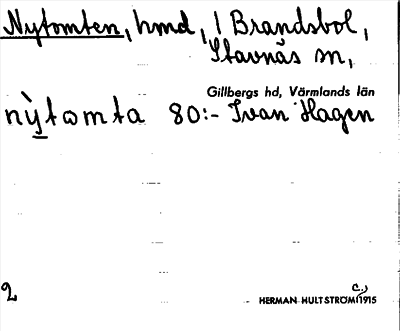 Nytomten, hmd, 1 Brandsbol,
Stavnäs sn,
Gillbergs hd, Värmlands län
nỳtɷmta 80:- Ivan Hagen
2
HERMAN HULTSTRÖM 1915
c.